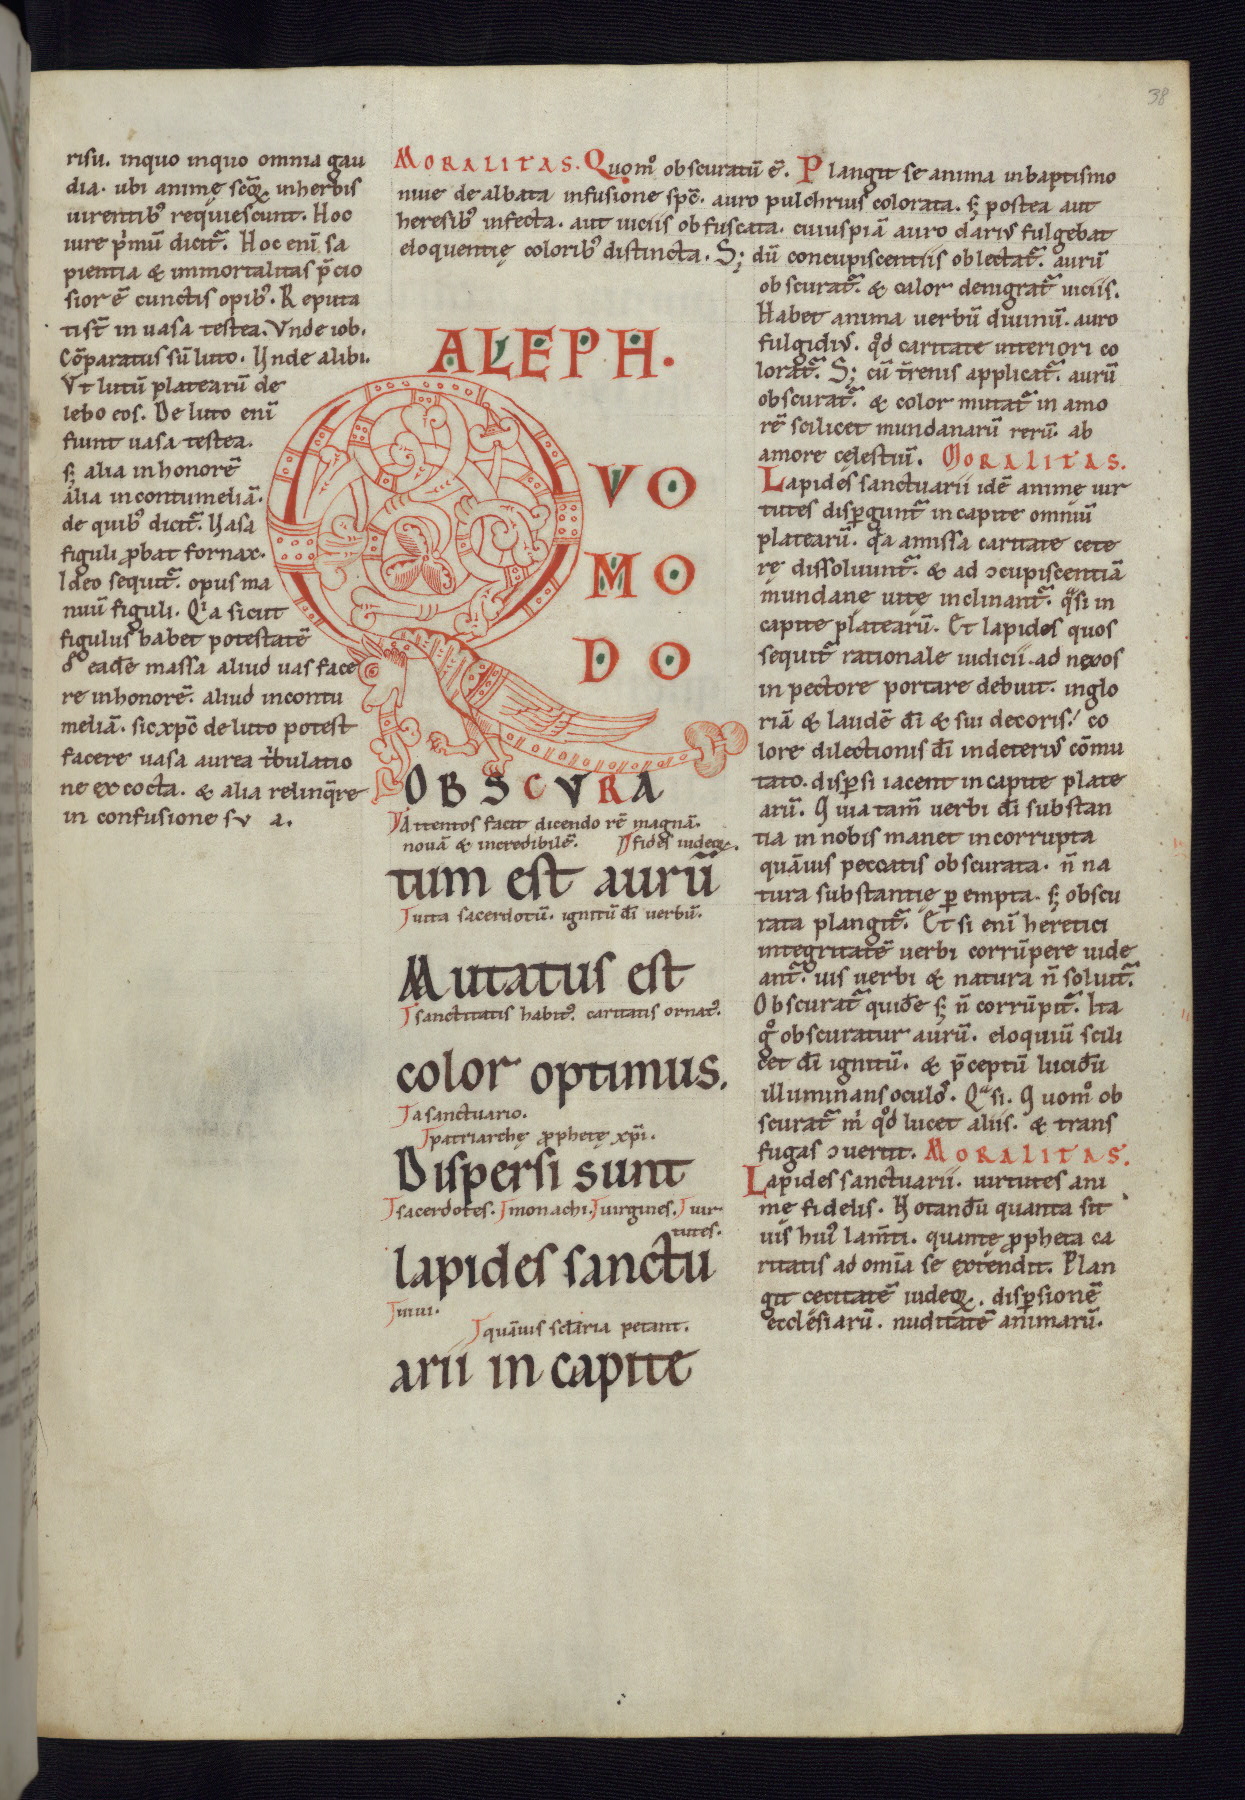 38
risu. inquo inquo omnia gau
dia. ubi animę seq̄ inherbis
uirentib' requiescunt. Hoc
iure p'mū dicit͛. Hoc enī sa
pientia & immortalitas p̄cio
sior ē cunctis opib'. Reputa
ti sт̄ in uasa testea. Vnde iob.
Cōparatus sū luto. Unde alibi.
Vt lutū platearū de
lebo eos. De luto enī
fiunt uasa testea.
s; alia in honorē
alia in contumeliā.
de quib' dicit͛. Uasa
figuli ꝓbat fornax.
Ideo sequit͛. opus ma
nuū figuli. Qia sicut
figulus habet potestatē
eadē massa aliud uas face
re inhonorē. aliud incontu
meliā. sic xp̄c de luto potest
facere uasa aurea t'bulatio
ne excocta. & alia relinq̄re
in confusione sv a.
MORALITAS. Quom̊ obscuratū ē. Plangit se anima inbaptismo
niue dealbata infusione sp̄c. auro pulchrius colorata. s; postea aut
heresib' infecta. aut uiciis obfuscata. cuiuspiā auro clari' fulgebat
eloquentię colorib' distincta. S; dū concupiscentiis oblectat͛. aurū
obscurat͛. & color denigrat͛ uiciis.
Habet anima uerbū diuinū. auro
fulgidi'. qd̄ caritate interiori co
lorat͛. S; cū t̄renis applicat͛. aurū
obscurat͛. & color mutat͛ in amo
rē scilicet mundanarū rerū. ab
amore cęlestiū. MORALITAS.
Lapides sanctuarii idē anime uir
tutes disꝑgunt͛ in capite omniū
platearū. qa amissa caritate cete
rę dissoluunt͛. & ad ɔcupiscentiā
mundanę uitę inclinant͛. qsi in
capite platearū. Et lapides quos
sequit͛ rationale iudicii. ad nexos
in pectore portare debuit. in glo
riā & laudē di̅ & sui decoris. co
lore dilectionis di̅ in deteri' cōmu
tato. disꝑsi iacent in capite plate
arū. Quia tam̄ uerbi di̅ substan
tia in nobis manet incorrupta
quāuis peccatis obscurata. n̄ na
tura substantię ꝑempta. s; obscu
rata plangit͛. Et si enī heretici
integritatē uerbi corrūpere uide
ant͛. uis uerbi & natura n̄ soluit͛.
Obscurat͛ quidē s; n̄ corrūpit͛. Ita
gͦ obscuratur aurū. eloquiū scili
cet di̅ ignitū. & p̄ceptū lucidū
illuminans oculos. Qasi. Quom̊ ob
scurat͛ m' qd̄ lucet aliis. & trans
fugas ɔuertit. MORALITAS.
Lapides sanctuarii. uirtutes ani
mę fidelis. Notandū quanta sit
uis hui' lam̄ti. quantę ꝓpheta ca
ritatis ad om̄ia se extendit. Plan
git cecitatē iudeoꝝ. disꝑsionē
ecclesiarū. nuditatē animarū.
ALEPH.
QVO
MO
DO
OBSCVRA
Attentos facit dicendo rē magnā.
nouā & incredibilē. fides iudeoꝝ.
tum est aurū
uita sacerdotū. ignitū di̅ uerbū.
Mutatus est
sanctitatis habit'. caritatis ornat'.
color optimus.
a sanctuario.
patriarchę ꝓphetę xp̄i.
Dispersi sunt
sacerdotes. monachi. uirgines. uir
tutes.
lapides sanctu
uiui.
quāuis sclāria petant.
arii in capite